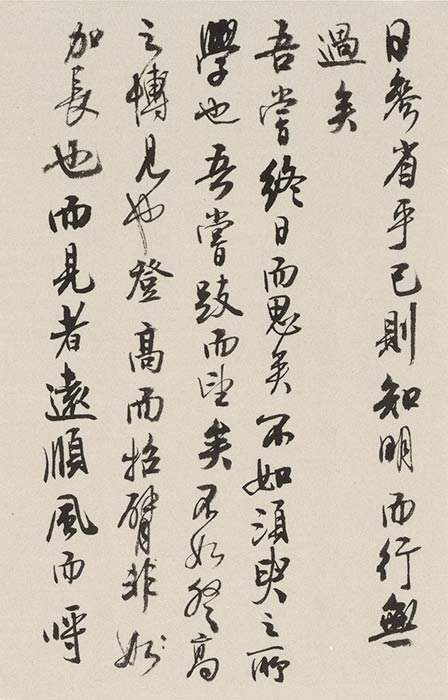 日參省乎己則知明而行無
過矣
吾嘗終日而思矣不如須臾之所
學也吾嘗跂而望矣不如登高
之博見也登高而招臂非
加長也而見者遠順風而呼